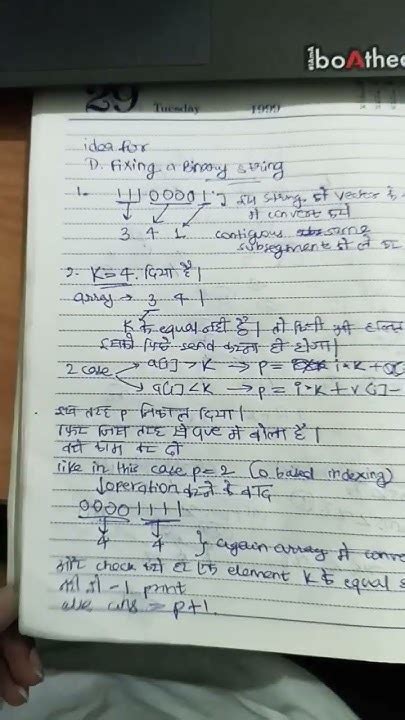 boAthea
29 Tuesday 1999
idea for
D. Fixing a Binary string
1. 11100001 इस string को vector के
में convert करो
3 4 1 contiguous same
subsegment को ले कर
2. K=4. दिया है।
array → 3 4 1
K के equal नहीं है। तो किसी भी हालत
इसको पीछे send करना ही होगा।
2 case a[i] > K → p = i*K +
a[i] < K → p = i*K + v[i]-
इस तरह p निकाल दिया।
फिर जिस तरह से que में बोला है।
वही काम कर दो
like in this case p=2 (0 based indexing)
operation करने के बाद
00001111
4 4 } again array में conve
और check करो हर एक element K के equal
- 1 print
else ans = p+1.